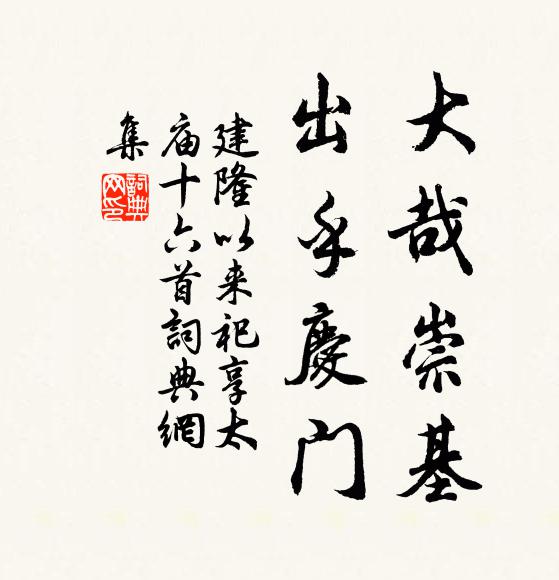 大哉崇基
出乎慶门
建隆以来祀享太
庙十六首詞典網
集
詞典
网印